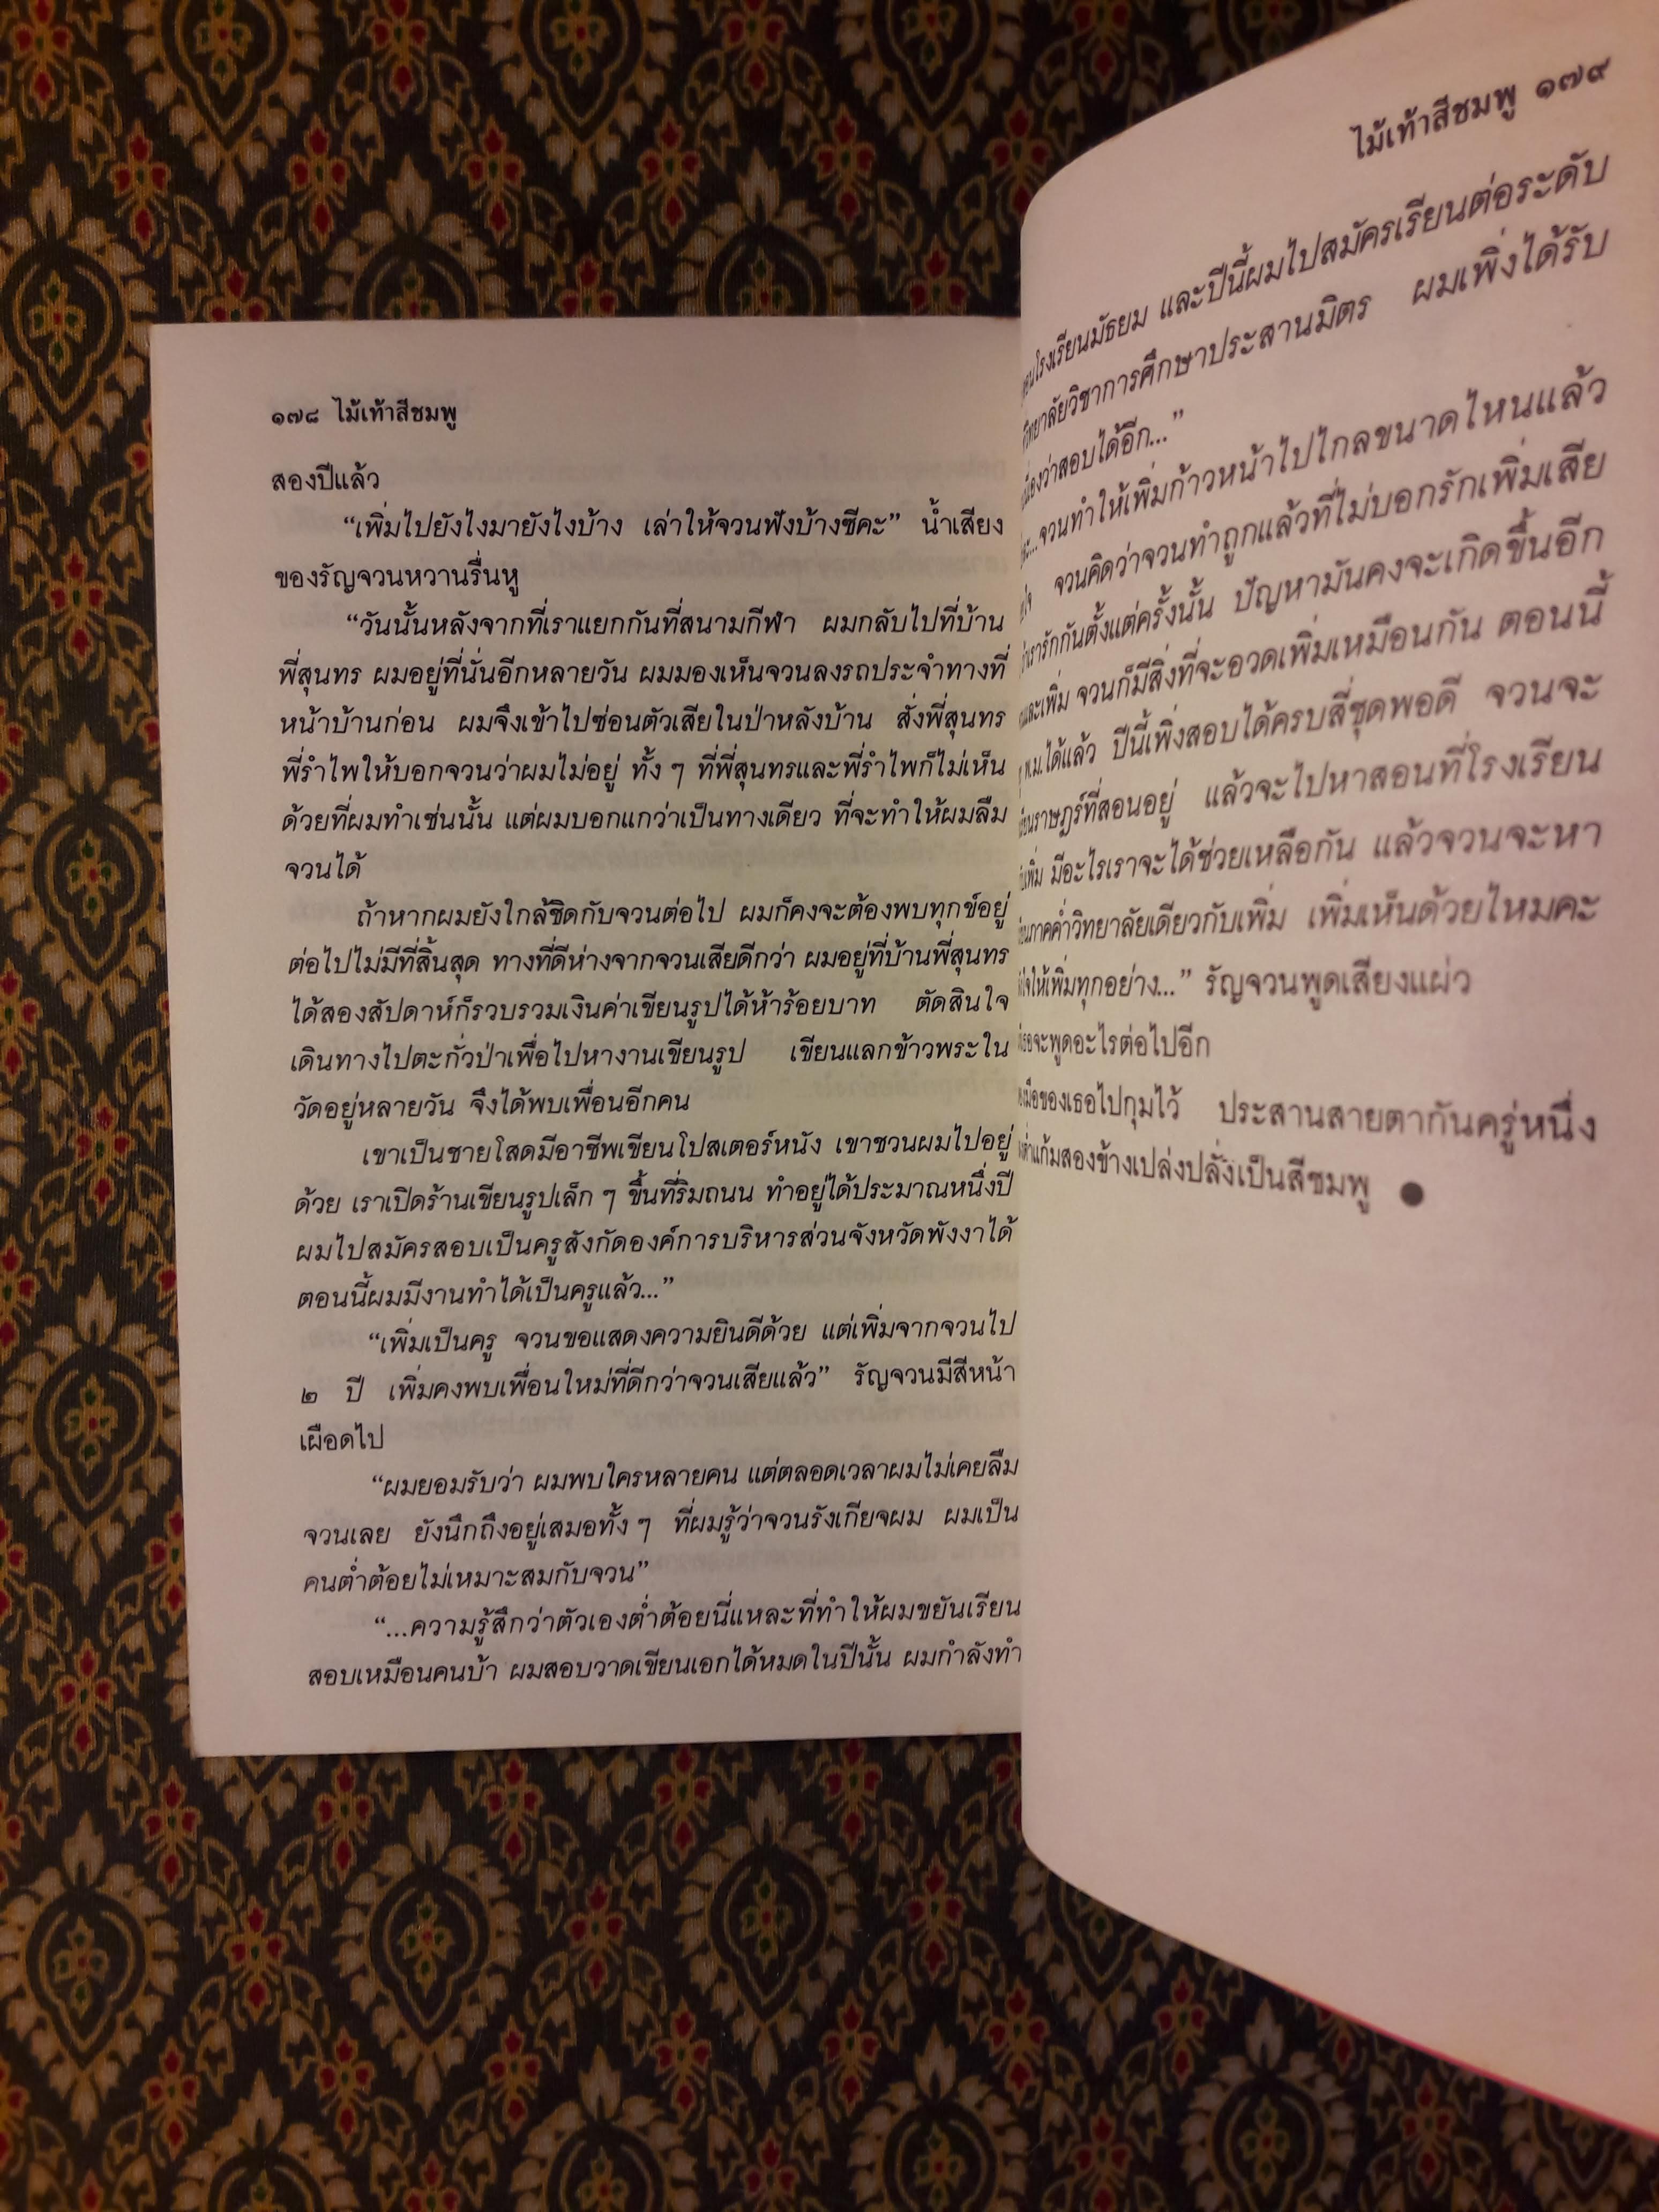 ๑๗๘ ไม้เท้าสีชมพู
สองปีแล้ว
“เพิ่มไปยังไงมายังไงบ้าง เล่าให้จวนฟังบ้างซีคะ” น้ำเสียง
ของรัญจวนหวานรื่นหู
“วันนั้นหลังจากที่เราแยกกันที่สนามกีฬา ผมกลับไปที่บ้าน
พี่สุนทร ผมอยู่ที่นั่นอีกหลายวัน ผมมองเห็นจวนลงรถประจำทางที่
หน้าบ้านก่อน ผมจึงเข้าไปซ่อนตัวเสียในป่าหลังบ้าน สั่งพี่สุนทร
พี่รำไพให้บอกจวนว่าผมไม่อยู่ ทั้ง ๆ ที่พี่สุนทรและพี่รำไพก็ไม่เห็น
ด้วยที่ผมทำเช่นนั้น แต่ผมบอกแกว่าเป็นทางเดียว ที่จะทำให้ผมลืม
จวนได้
ถ้าหากผมยังใกล้ชิดกับจวนต่อไป ผมก็คงจะต้องพบทุกข์อยู่
ต่อไปไม่มีที่สิ้นสุด ทางที่ดีห่างจากจวนเสียดีกว่า ผมอยู่ที่บ้านพี่สุนทร
ได้สองสัปดาห์ก็รวบรวมเงินค่าเขียนรูปได้ห้าร้อยบาท ตัดสินใจ
เดินทางไปตะกั่วป่าเพื่อไปหางานเขียนรูป เขียนแลกข้าวพระใน
วัดอยู่หลายวัน จึงได้พบเพื่อนอีกคน
เขาเป็นชายโสดมีอาชีพเขียนโปสเตอร์หนัง เขาชวนผมไปอยู่
ด้วย เราเปิดร้านเขียนรูปเล็ก ๆ ขึ้นที่ริมถนน ทำอยู่ได้ประมาณหนึ่งปี
ผมไปสมัครสอบเป็นครูสังกัดองค์การบริหารส่วนจังหวัดพังงาได้
ตอนนี้ผมมีงานทำได้เป็นครูแล้ว...”
“เพิ่มเป็นครู จวนขอแสดงความยินดีด้วย แต่เพิ่มจากจวนไป
๒ ปี เพิ่มคงพบเพื่อนใหม่ที่ดีกว่าจวนเสียแล้ว” รัญจวนมีสีหน้า
เผือดไป
“ผมยอมรับว่า ผมพบใครหลายคน แต่ตลอดเวลาผมไม่เคยลืม
จวนเลย ยังนึกถึงอยู่เสมอทั้ง ๆ ที่ผมรู้ว่าจวนรังเกียจผม ผมเป็น
คนต่ำต้อยไม่เหมาะสมกับจวน”
“...ความรู้สึกว่าตัวเองต่ำต้อยนี่แหละที่ทำให้ผมขยันเรียน
สอบเหมือนคนบ้า ผมสอบวาดเขียนเอกได้หมดในปีนั้น ผมกำลังทำ
ไม้เท้าสีชมพู ๑๗๙
โรงเรียนมัธยม และปีนี้ผมไปสมัครเรียนต่อระดับ
วิทยาลัยวิชาการศึกษาประสานมิตร ผมเพิ่งได้รับ
ว่าสอบได้อีก...”
จวนทำให้เพิ่มก้าวหน้าไปไกลขนาดไหนแล้ว
จวนคิดว่าจวนทำถูกแล้วที่ไม่บอกรักเพิ่มเสีย
เรารักกันตั้งแต่ครั้งนั้น ปัญหามันคงจะเกิดขึ้นอีก
และเพิ่ม จวนก็มีสิ่งที่จะอวดเพิ่มเหมือนกัน ตอนนี้
พ.ม.ได้แล้ว ปีนี้เพิ่งสอบได้ครบสี่ชุดพอดี จวนจะ
ราษฎร์ที่สอนอยู่ แล้วจะไปหาสอนที่โรงเรียน
เพิ่ม มีอะไรเราจะได้ช่วยเหลือกัน แล้วจวนจะหา
ภาคค่ำวิทยาลัยเดียวกับเพิ่ม เพิ่มเห็นด้วยไหมคะ
ให้เพิ่มทุกอย่าง...” รัญจวนพูดเสียงแผ่ว
เธอจะพูดอะไรต่อไปอีก
มือของเธอไปกุมไว้ ประสานสายตากันครู่หนึ่ง
แก้มสองข้างเปล่งปลั่งเป็นสีชมพู ●